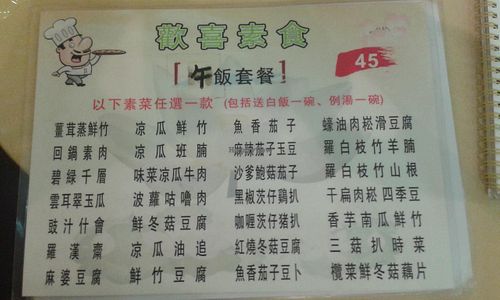 歡喜素食
午飯套餐!
45
以下素菜任選一款 (包括送白飯一碗、例湯一碗)
薑茸蒸鮮竹 涼瓜鮮竹 魚香茄子 蠔油肉崧滑豆腐
回鍋素肉 涼瓜班腩 麻辣茄子玉豆 羅白枝竹羊腩
碧綠千層 味菜涼瓜牛肉 沙爹鮑菇茄子 羅白枝竹山根
雲耳翠玉瓜 波蘿咕嚕肉 黑椒茨仔鷄扒 干扁肉崧四季豆
豉汁什會 鮮冬菇豆腐 咖喱茨仔猪扒 香芋南瓜鮮竹
羅漢齋 涼瓜油追 紅燒冬菇豆腐 三菇扒時菜
麻婆豆腐 鮮竹豆腐 魚香茄子豆卜 欖菜鮮冬菇藕片